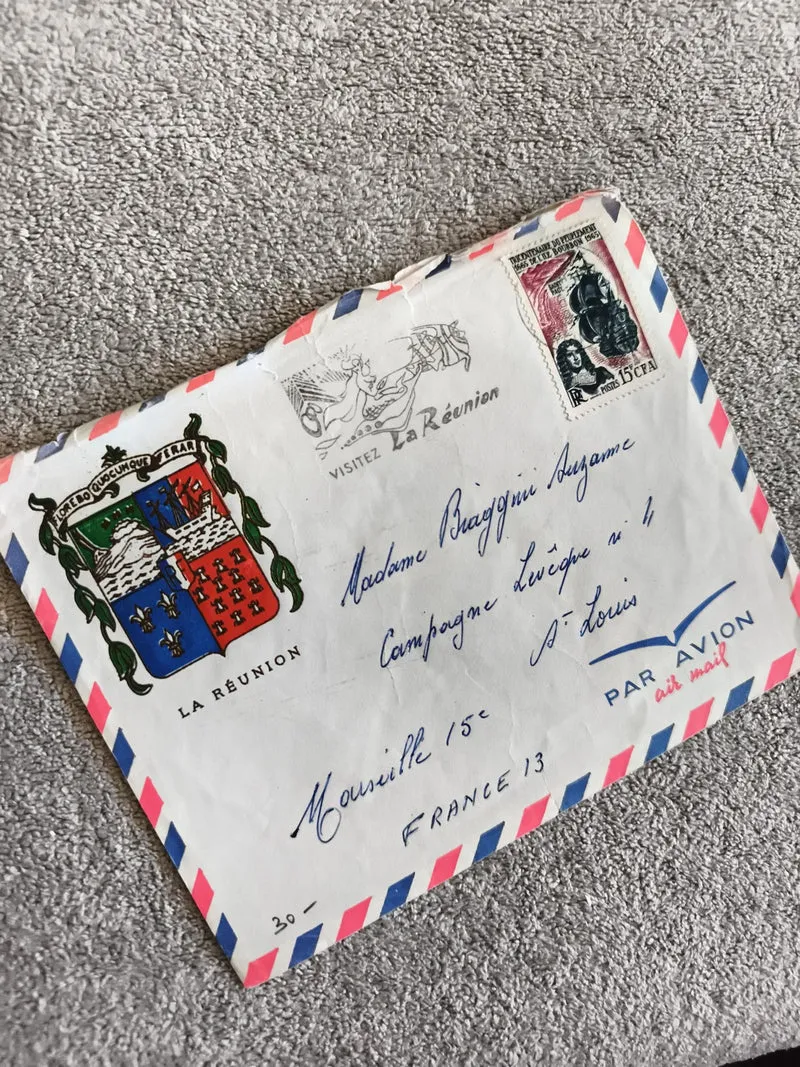 TRICENTENAIRE DU PEUPLEMENT
1665 DE L'ILE BOURBON 1965
POSTES 15F CFA
RF
VISITEZ La Réunion
FLOREBO QUOCUMQUE FERAR
LA RÉUNION
Madame Biaggini Suzanne
Campagne Levêque n 4
St Louis
PAR AVION
air mail
Marseille 15e
FRANCE 13
30-